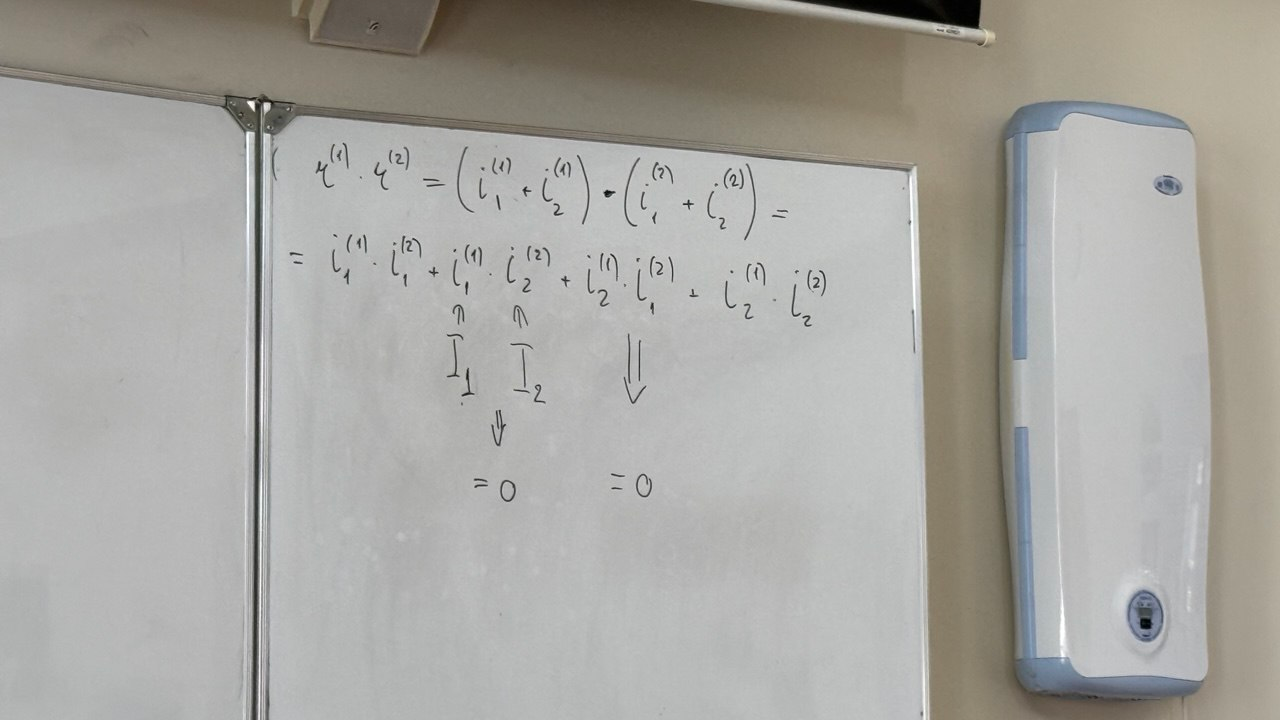 ( r^{(1)} · r^{(2)} = ( i_1^{(1)} + i_2^{(1)} ) · ( i_1^{(2)} + i_2^{(2)} ) =
= i_1^{(1)} · i_1^{(2)} + i_1^{(1)} · i_2^{(2)} + i_2^{(1)} · i_1^{(2)} + i_2^{(1)} · i_2^{(2)}
↑ ↑ ⇓
I_1 I_2
⇓
= 0 = 0